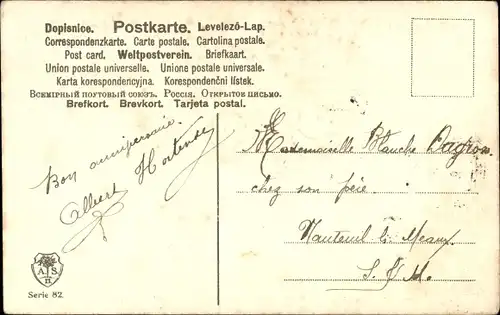 Dopisnice. Postkarte. Levelező-Lap.
Correspondenzkarte. Carte postale. Cartolina postale.
Post card. Weltpostverein. Briefkaart.
Union postale universelle. Unione postale universale.
Karta korespondencyjna. Korespondenční lístek.
Всемірный почтовый союзъ. Россія. Открытое письмо.
Brefkort. Brevkort. Tarjeta postal.
Bon anniversaire.
Albert Hortense
Mademoiselle Blanche Dagron
chez son père
Nanteuil les Meaux
S. & M.
A S
Serie 82.